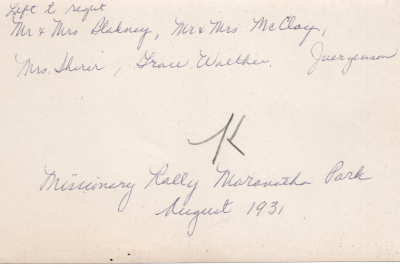 Left to right
Mr & Mrs Blakney, Mr & Mrs McCloy,
Mrs. Sherer, Grace Walther. Juergenson
K
Missionary Rally Maranatha Park
August 1931